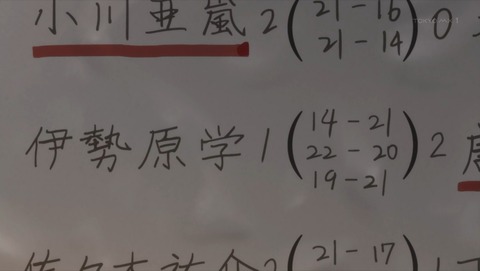 小川亜嵐 2 (21-16 21-14) 0
TOKYO MX 1
伊勢原学 1 (14-21 22-20 19-21) 2
2 (21-17